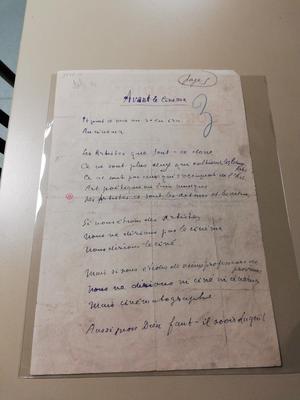 page 5
Avant le cinéma
3
Et puis ce soir on s'en ira
Au cinéma
Les Artistes que sont-ce donc
Ce ne sont plus ceux qui cultivent les Beaux-Arts
Ce ne sont pas ceux qui s'occupent de l'Art
Art poétique ou bien musique
Les Artistes ce sont les acteurs et les actrices
Si nous étions des Artistes
Nous ne dirions pas le cinéma
Nous dirions le ciné
Mais si nous étions de vieux professeurs de province
Nous ne dirions ni ciné ni cinéma
Mais cinématographe
Aussi mon Dieu faut-il avoir du goût